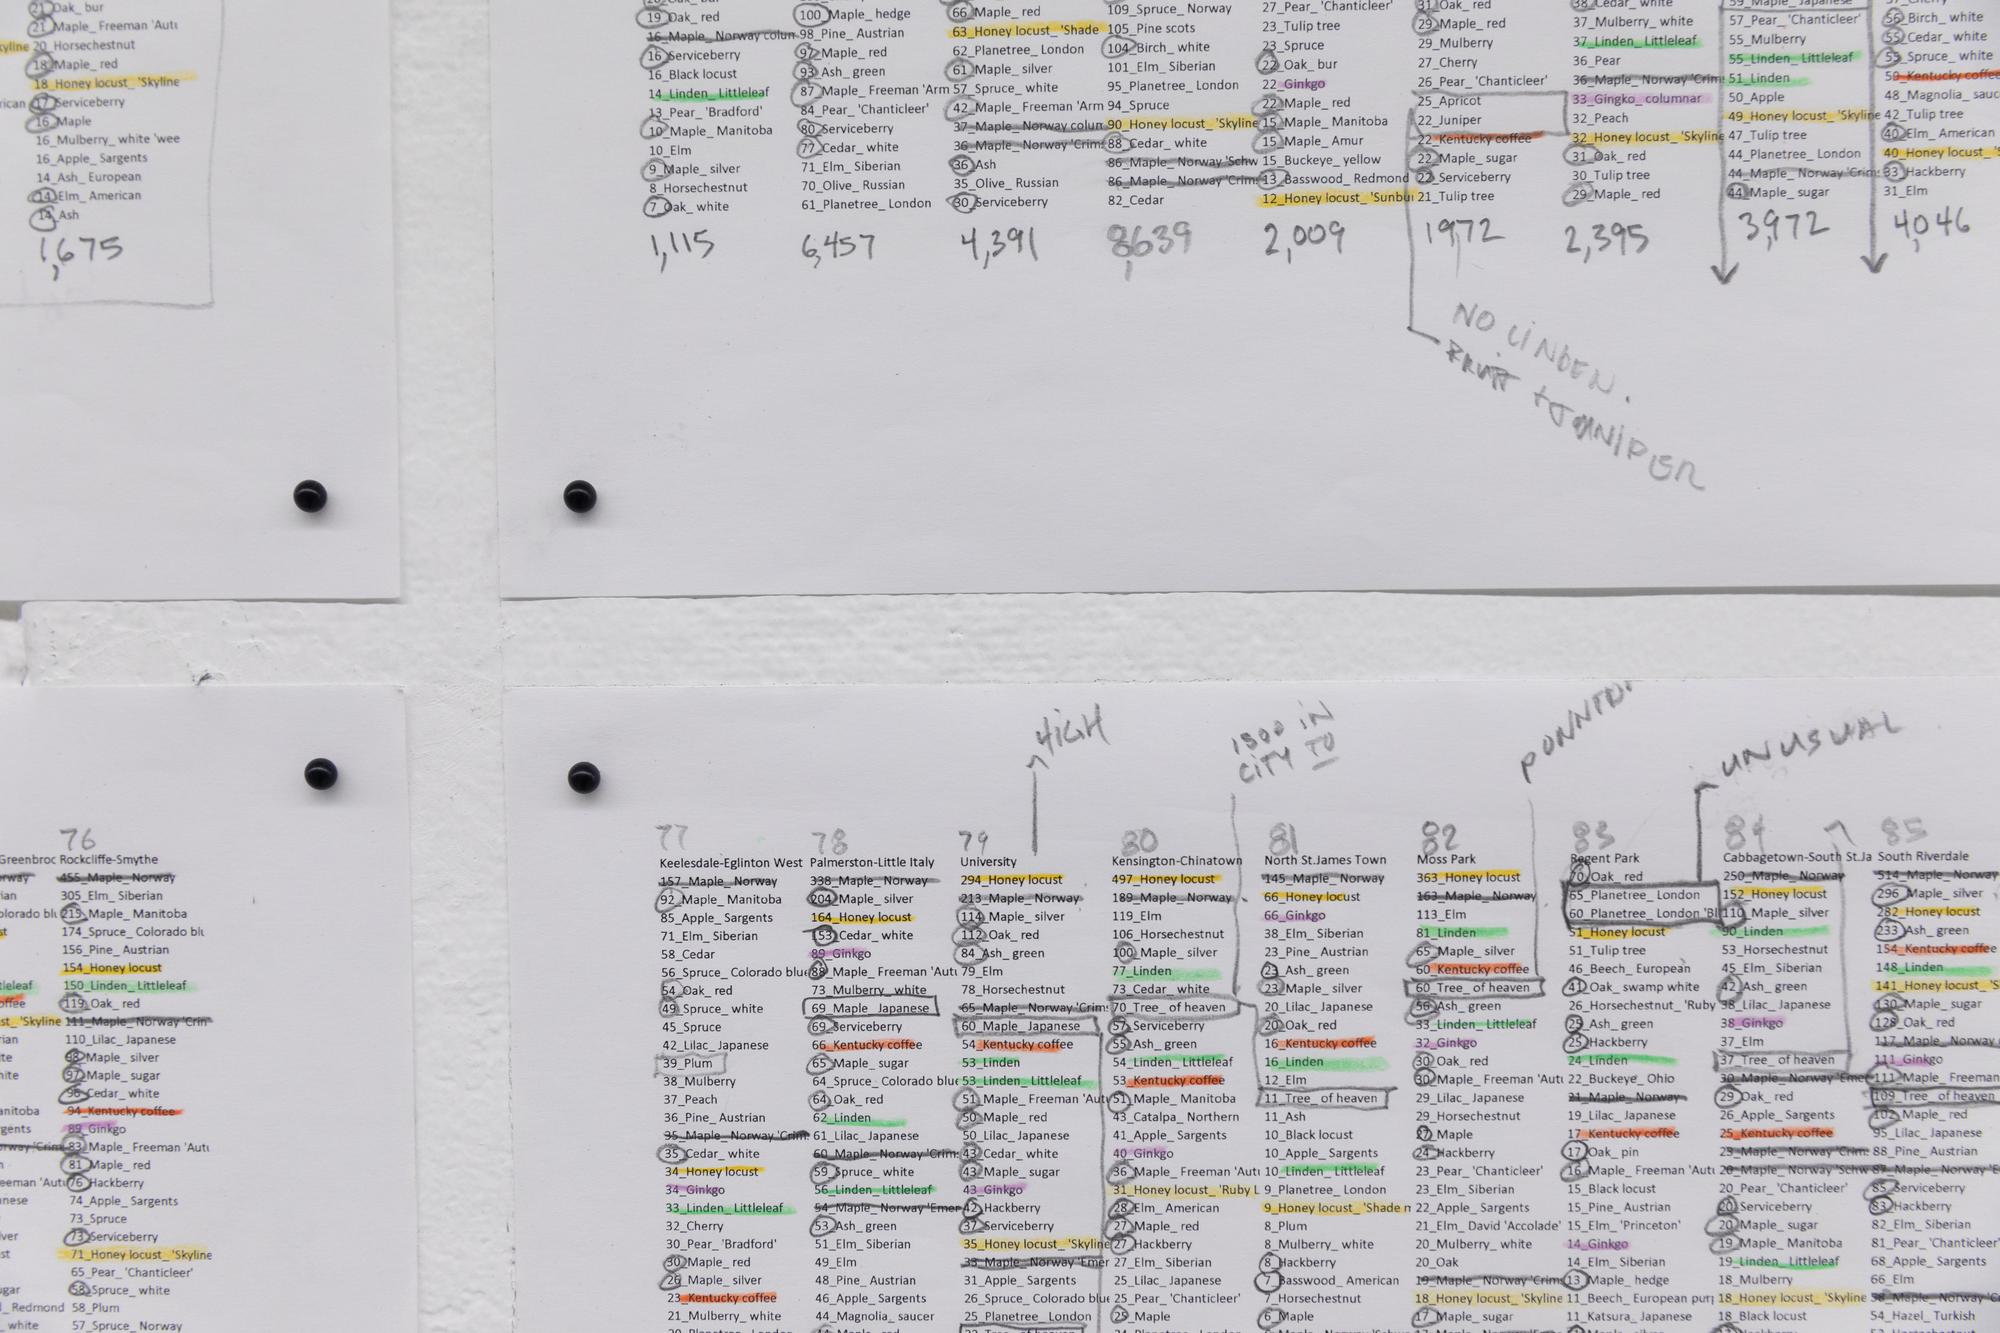 21_Oak_ bur
21_Maple_ Freeman 'Aut
20_Horsechestnut
18_Maple_ red
18_Honey locust_ 'Skyline
17_Serviceberry
16_Maple
16_Mulberry_ white 'wee
16_Apple_ Sargents
14_Ash_ European
14_Elm_ American
14_Ash
1,675
19_Oak_ red
16_Maple_ Norway colun
16_Serviceberry
16_Black locust
14_Linden_ Littleleaf
13_Pear_ 'Bradford'
10_Maple_ Manitoba
10_Elm
9_Maple_ silver
8_Horsechestnut
7_Oak_ white
1,115
100_Maple_ hedge
98_Pine_ Austrian
97_Maple_ red
93_Ash_ green
87_Maple_ Freeman 'Arm
84_Pear_ 'Chanticleer'
80_Serviceberry
77_Cedar_ white
71_Elm_ Siberian
70_Olive_ Russian
61_Planetree_ London
6,457
66_Maple_ red
63_Honey locust_ 'Shade
62_Planetree_ London
61_Maple_ silver
57_Spruce_ white
42_Maple_ Freeman 'Arm
37_Maple_ Norway colun
36_Maple_ Norway 'Crim
36_Ash
35_Olive_ Russian
30_Serviceberry
4,391
109_Spruce_ Norway
105_Pine scots
104_Birch_ white
101_Elm_ Siberian
95_Planetree_ London
94_Spruce
90_Honey locust_ 'Skyline
88_Cedar_ white
86_Maple_ Norway 'Schw
86_Maple_ Norway 'Crim
82_Cedar
8,639
27_Pear_ 'Chanticleer'
23_Tulip tree
23_Spruce
22_Oak_ bur
22_Ginkgo
22_Maple_ red
15_Maple_ Manitoba
15_Maple_ Amur
15_Buckeye_ yellow
13_Basswood_ Redmond
12_Honey locust_ 'Sunbu
2,009
31_Oak_ red
29_Maple_ red
29_Mulberry
27_Cherry
26_Pear_ 'Chanticleer'
25_Apricot
22_Juniper
22_Kentucky coffee
22_Maple_ sugar
22_Serviceberry
21_Tulip tree
1972
38_Cedar_ white
37_Mulberry_ white
37_Linden_ Littleleaf
36_Pear
36_Maple_ Norway 'Crim
33_Gingko_ columnar
32_Peach
32_Honey locust_ 'Skyline
31_Oak_ red
30_Tulip tree
29_Maple_ red
2,395
59_Maple_ Japanese
57_Pear_ 'Chanticleer'
55_Mulberry
55_Linden_ Littleleaf
51_Linden
50_Apple
49_Honey locust_ 'Skyline
47_Tulip tree
44_Planetree_ London
44_Maple_ Norway 'Crim
44_Maple_ sugar
3,972
56_Birch_ white
55_Cedar_ white
55_Spruce_ white
50_Kentucky coffee
48_Magnolia_ sauc
42_Tulip tree
40_Elm_ American
40_Honey locust_ 'S
33_Hackberry
31_Elm
4,046
NO LINDEN.
FRUIT + JUNIPER
HIGH
1300 IN
CITY TO
UNUSUAL
76
Greenbroc Rockcliffe-Smythe
455_Maple_ Norway
305_Elm_ Siberian
215_Maple_ Manitoba
174_Spruce_ Colorado blu
156_Pine_ Austrian
154_Honey locust
150_Linden_ Littleleaf
119_Oak_ red
111_Maple_ Norway 'Crin
110_Lilac_ Japanese
98_Maple_ silver
97_Maple_ sugar
96_Cedar_ white
94_Kentucky coffee
89_Ginkgo
83_Maple_ Freeman 'Aut
81_Maple_ red
76_Hackberry
74_Apple_ Sargents
73_Spruce
73_Serviceberry
71_Honey locust_ 'Skyline
65_Pear_ 'Chanticleer'
58_Spruce_ white
58_Plum
57_Spruce_ Norway
77
Keelesdale-Eglinton West
157_Maple_ Norway
92_Maple_ Manitoba
85_Apple_ Sargents
71_Elm_ Siberian
58_Cedar
56_Spruce_ Colorado blu
54_Oak_ red
49_Spruce_ white
45_Spruce
42_Lilac_ Japanese
39_Plum
38_Mulberry
37_Peach
36_Pine_ Austrian
35_Maple_ Norway 'Crim
35_Cedar_ white
34_Honey locust
34_Ginkgo
33_Linden_ Littleleaf
32_Cherry
30_Pear_ 'Bradford'
30_Maple_ red
26_Maple_ silver
23_Kentucky coffee
21_Mulberry_ white
78
Palmerston-Little Italy
338_Maple_ Norway
204_Maple_ silver
164_Honey locust
153_Cedar_ white
89_Ginkgo
88_Maple_ Freeman 'Aut
73_Mulberry_ white
69_Maple_ Japanese
69_Serviceberry
66_Kentucky coffee
65_Maple_ sugar
64_Spruce_ Colorado blu
64_Oak_ red
62_Linden
61_Lilac_ Japanese
60_Maple_ Norway 'Crim
59_Spruce_ white
56_Linden_ Littleleaf
54_Maple_ Norway 'Emer
53_Ash_ green
51_Elm_ Siberian
49_Elm
48_Pine_ Austrian
46_Apple_ Sargents
44_Magnolia_ saucer
79
University
294_Honey locust
213_Maple_ Norway
114_Maple_ silver
112_Oak_ red
84_Ash_ green
79_Elm
78_Horsechestnut
65_Maple_ Norway 'Crim
60_Maple_ Japanese
54_Kentucky coffee
53_Linden
53_Linden_ Littleleaf
51_Maple_ Freeman 'Aut
50_Maple_ red
50_Lilac_ Japanese
43_Cedar_ white
43_Maple_ sugar
43_Ginkgo
42_Hackberry
37_Serviceberry
35_Honey locust_ 'Skyline
33_Maple_ Norway 'Emer
31_Apple_ Sargents
26_Spruce_ Colorado blu
25_Planetree_ London
80
Kensington-Chinatown
497_Honey locust
189_Maple_ Norway
119_Elm
106_Horsechestnut
100_Maple_ silver
77_Linden
73_Cedar_ white
70_Tree_ of heaven
57_Serviceberry
55_Ash_ green
54_Linden_ Littleleaf
53_Kentucky coffee
51_Maple_ Manitoba
43_Catalpa_ Northern
41_Apple_ Sargents
40_Ginkgo
36_Maple_ Freeman 'Aut
31_Honey locust_ 'Ruby L
28_Elm_ American
27_Maple_ red
27_Hackberry
27_Elm_ Siberian
25_Lilac_ Japanese
25_Pear_ 'Chanticleer'
25_Maple
81
North St.James Town
145_Maple_ Norway
66_Honey locust
66_Ginkgo
38_Elm_ Siberian
23_Pine_ Austrian
23_Ash_ green
23_Maple_ silver
20_Lilac_ Japanese
20_Oak_ red
16_Kentucky coffee
16_Linden
12_Elm
11_Tree_ of heaven
11_Ash
10_Black locust
10_Apple_ Sargents
10_Linden_ Littleleaf
9_Planetree_ London
9_Honey locust_ 'Shade n
8_Plum
8_Mulberry_ white
8_Hackberry
7_Basswood_ American
7_Horsechestnut
6_Maple
82
Moss Park
363_Honey locust
163_Maple_ Norway
113_Elm
81_Linden
65_Maple_ silver
60_Kentucky coffee
60_Tree_ of heaven
56_Ash_ green
33_Linden_ Littleleaf
32_Ginkgo
30_Oak_ red
30_Maple_ Freeman 'Aut
29_Lilac_ Japanese
29_Horsechestnut
27_Maple
24_Hackberry
23_Pear_ 'Chanticleer'
23_Elm_ Siberian
22_Apple_ Sargents
21_Elm_ David 'Accolade'
20_Mulberry_ white
20_Oak
19_Maple_ Norway 'Crim
18_Honey locust_ 'Skyline
17_Maple_ sugar
83
Regent Park
70_Oak_ red
65_Planetree_ London
60_Planetree_ London 'Bl
51_Honey locust
51_Tulip tree
46_Beech_ European
41_Oak_ swamp white
26_Horsechestnut_ 'Ruby
25_Ash_ green
25_Hackberry
24_Linden
22_Buckeye_ Ohio
21_Maple_ Norway
19_Lilac_ Japanese
17_Kentucky coffee
17_Oak_ pin
16_Maple_ Freeman 'Aut
15_Black locust
15_Pine_ Austrian
15_Elm_ 'Princeton'
14_Ginkgo
14_Elm_ Siberian
13_Maple_ hedge
11_Beech_ European pur
11_Katsura_ Japanese
84
Cabbagetown-South St.Ja
250_Maple_ Norway
152_Honey locust
110_Maple_ silver
90_Linden
53_Horsechestnut
45_Elm_ Siberian
42_Ash_ green
38_Lilac_ Japanese
38_Ginkgo
37_Elm
37_Tree_ of heaven
30_Maple_ Norway 'Emer
29_Oak_ red
26_Apple_ Sargents
25_Kentucky coffee
23_Maple_ Norway 'Crim
20_Maple_ Norway 'Schw
20_Pear_ 'Chanticleer'
20_Serviceberry
20_Maple_ sugar
19_Maple_ Manitoba
19_Linden_ Littleleaf
18_Mulberry
18_Honey locust_ 'Skyline
18_Black locust
85
South Riverdale
514_Maple_ Norway
296_Maple_ silver
282_Honey locust
233_Ash_ green
154_Kentucky coffee
148_Linden
141_Honey locust_ 'S
130_Maple_ sugar
128_Oak_ red
117_Maple_ Norway
111_Ginkgo
111_Maple_ Freeman
109_Tree_ of heaven
102_Maple_ red
95_Lilac_ Japanese
88_Pine_ Austrian
87_Maple_ Norway 'E
85_Serviceberry
83_Hackberry
82_Elm_ Siberian
81_Pear_ 'Chanticleer'
68_Apple_ Sargents
66_Elm
58_Maple_ Norway 'C
54_Hazel_ Turkish